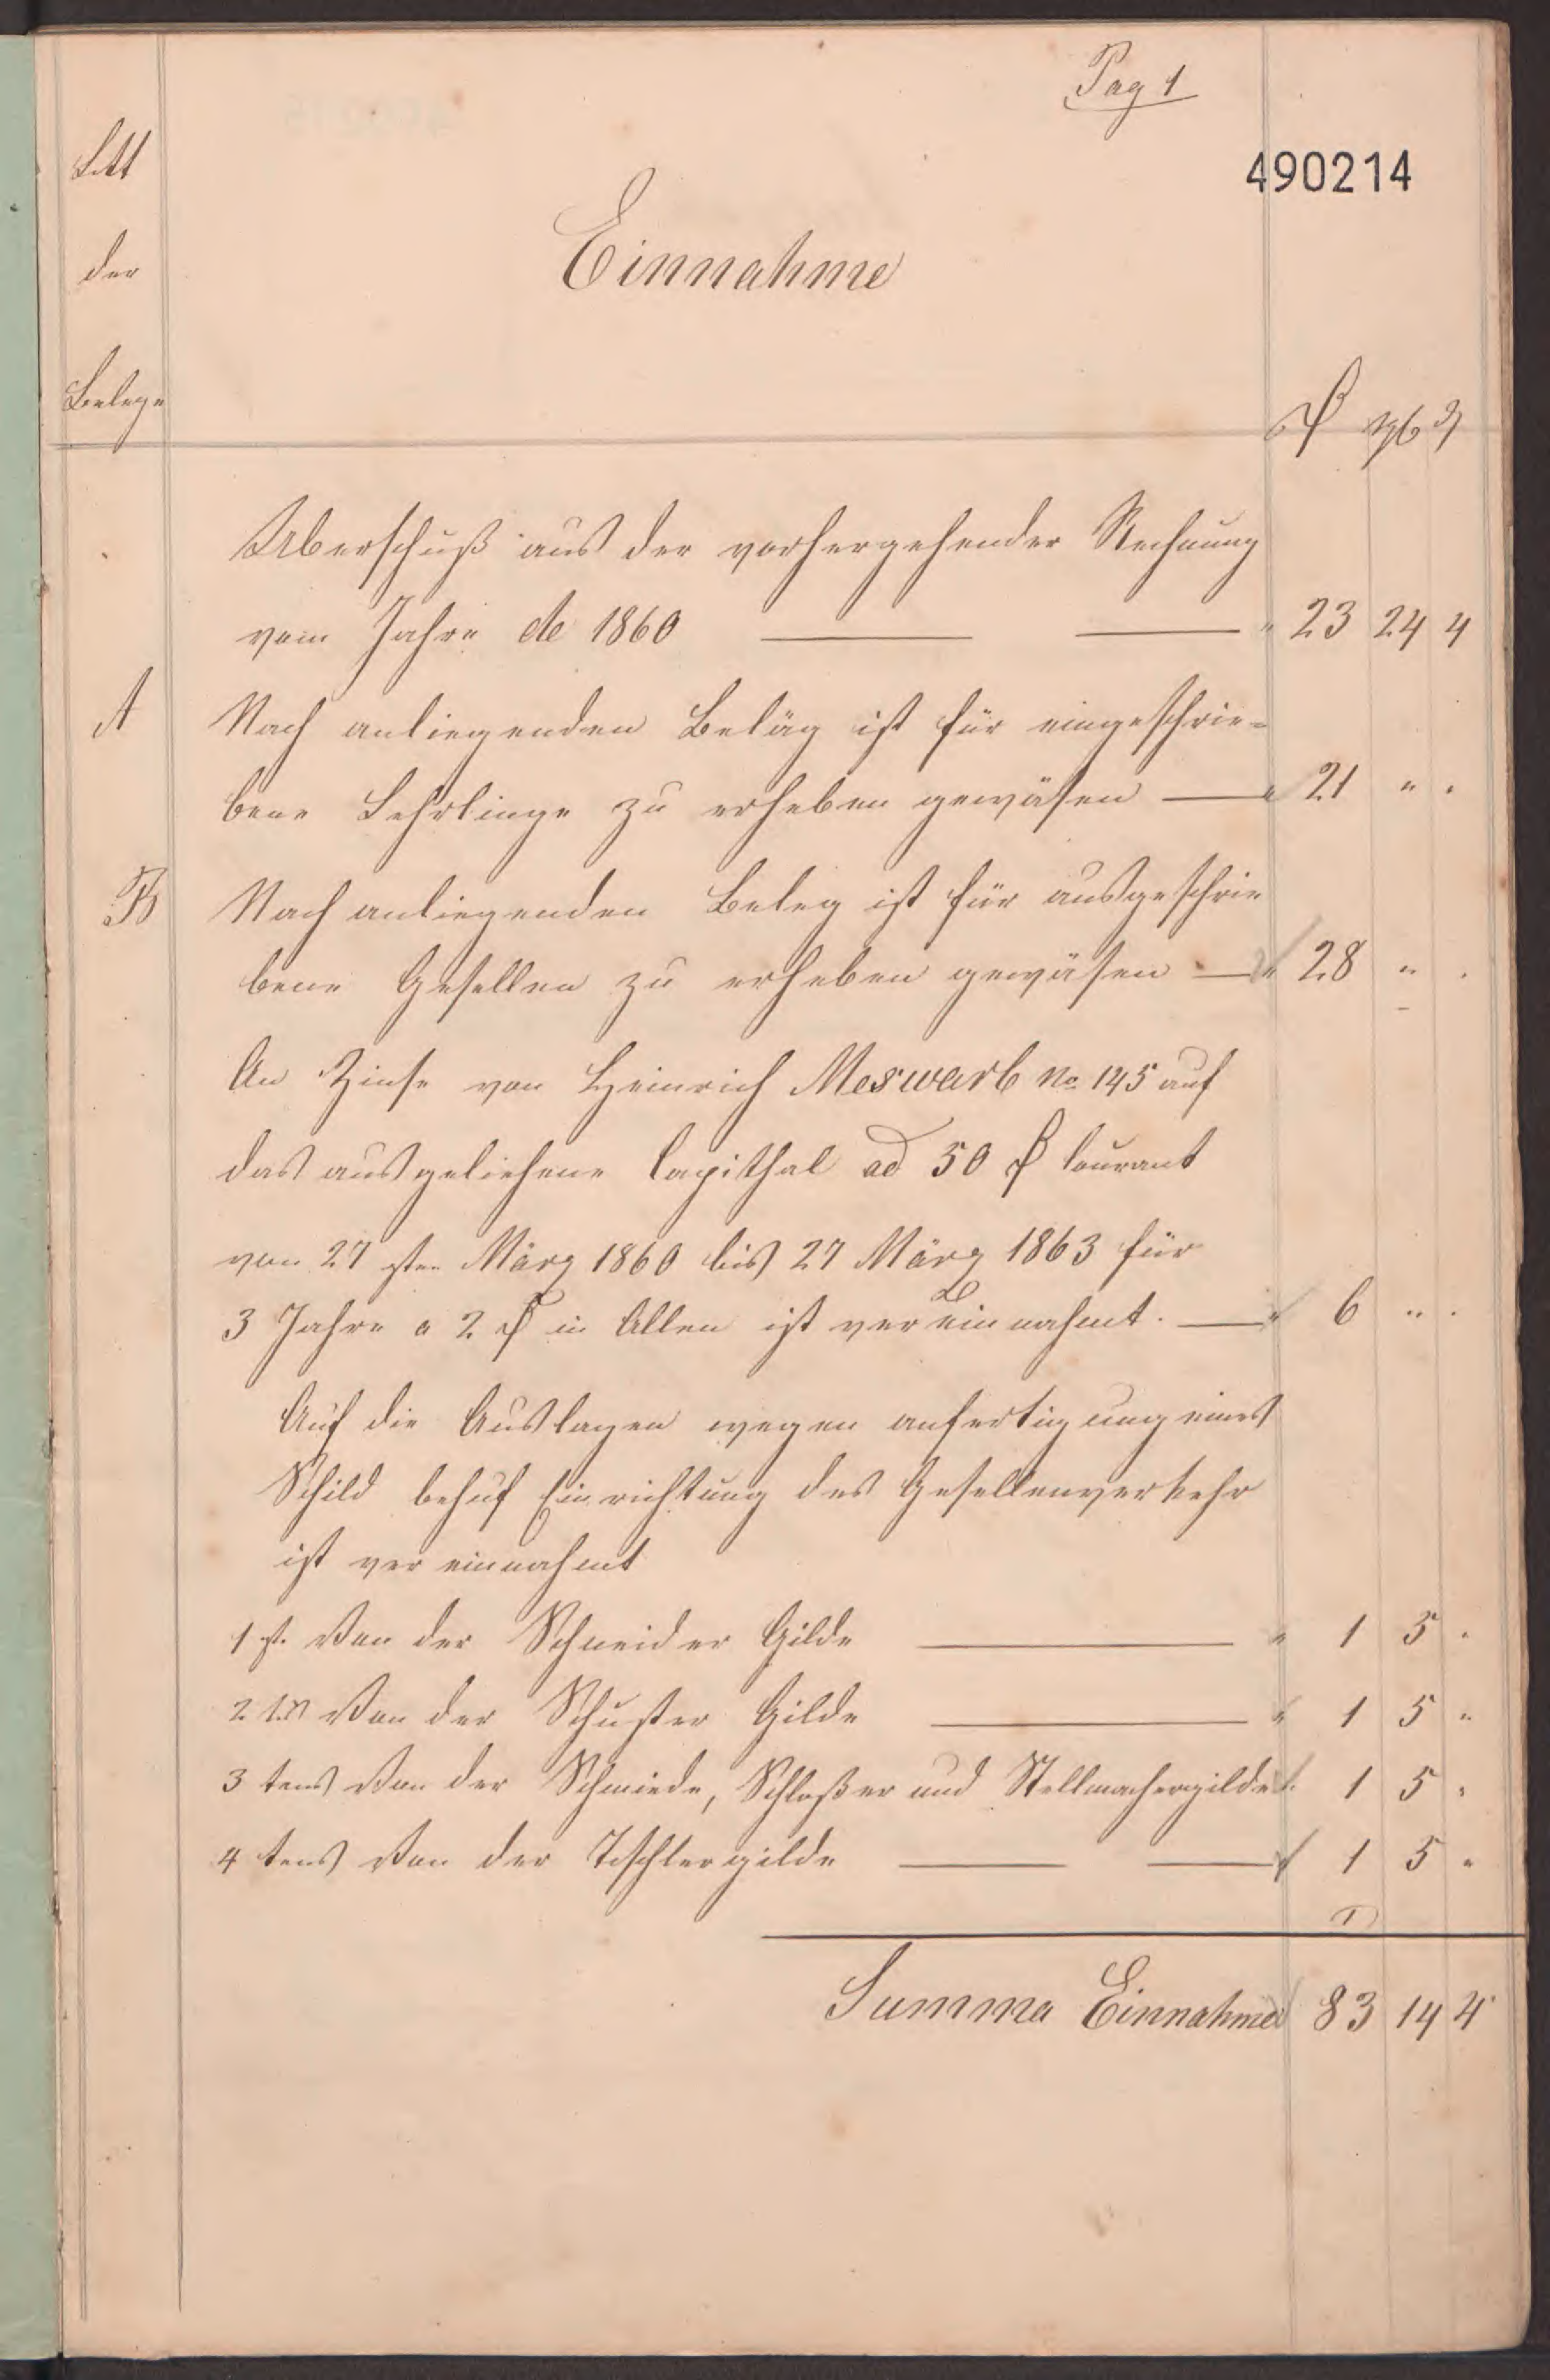 Pag 1
490214
Litt
der
Belege
Einnahme
₰ ggr ₰
Uberschuß aus der vorhergehender Rechnung
vom Jahre de 1860 " 23 24 4
A Nach anliegenden Beläg ist für eingeschrie-
bene Lehrlinge zu erheben gewäsen " 21 " "
B Nach anliegenden Beleg ist für ausgeschrie
bene Gesellen zu erheben gewäsen " 28 " "
An Zinse von Heinrich Meswarb No 145 auf
das ausgeliehene Capithal ad 50 ₰ Courant
von 27 sten März 1860 bis 27 März 1863 für
3 Jahre a 2 ₰ in Allen ist vereinnahmt. " 6 " "
Auf die Auslagen wegen anfertigung eines
Schild behuf Einrichtung des Gesellenverkehr
ist ver einnahmt
1 st. Von der Schneider Gilde " 1 5 "
2 ten Von der Schuster Gilde " 1 5 "
3 tens Von der Schmiede, Schloßer und Stellmachergilde " 1 5 "
4 tens Von der Tischlergilde " 1 5 "
Summa Einnahme 83 14 4